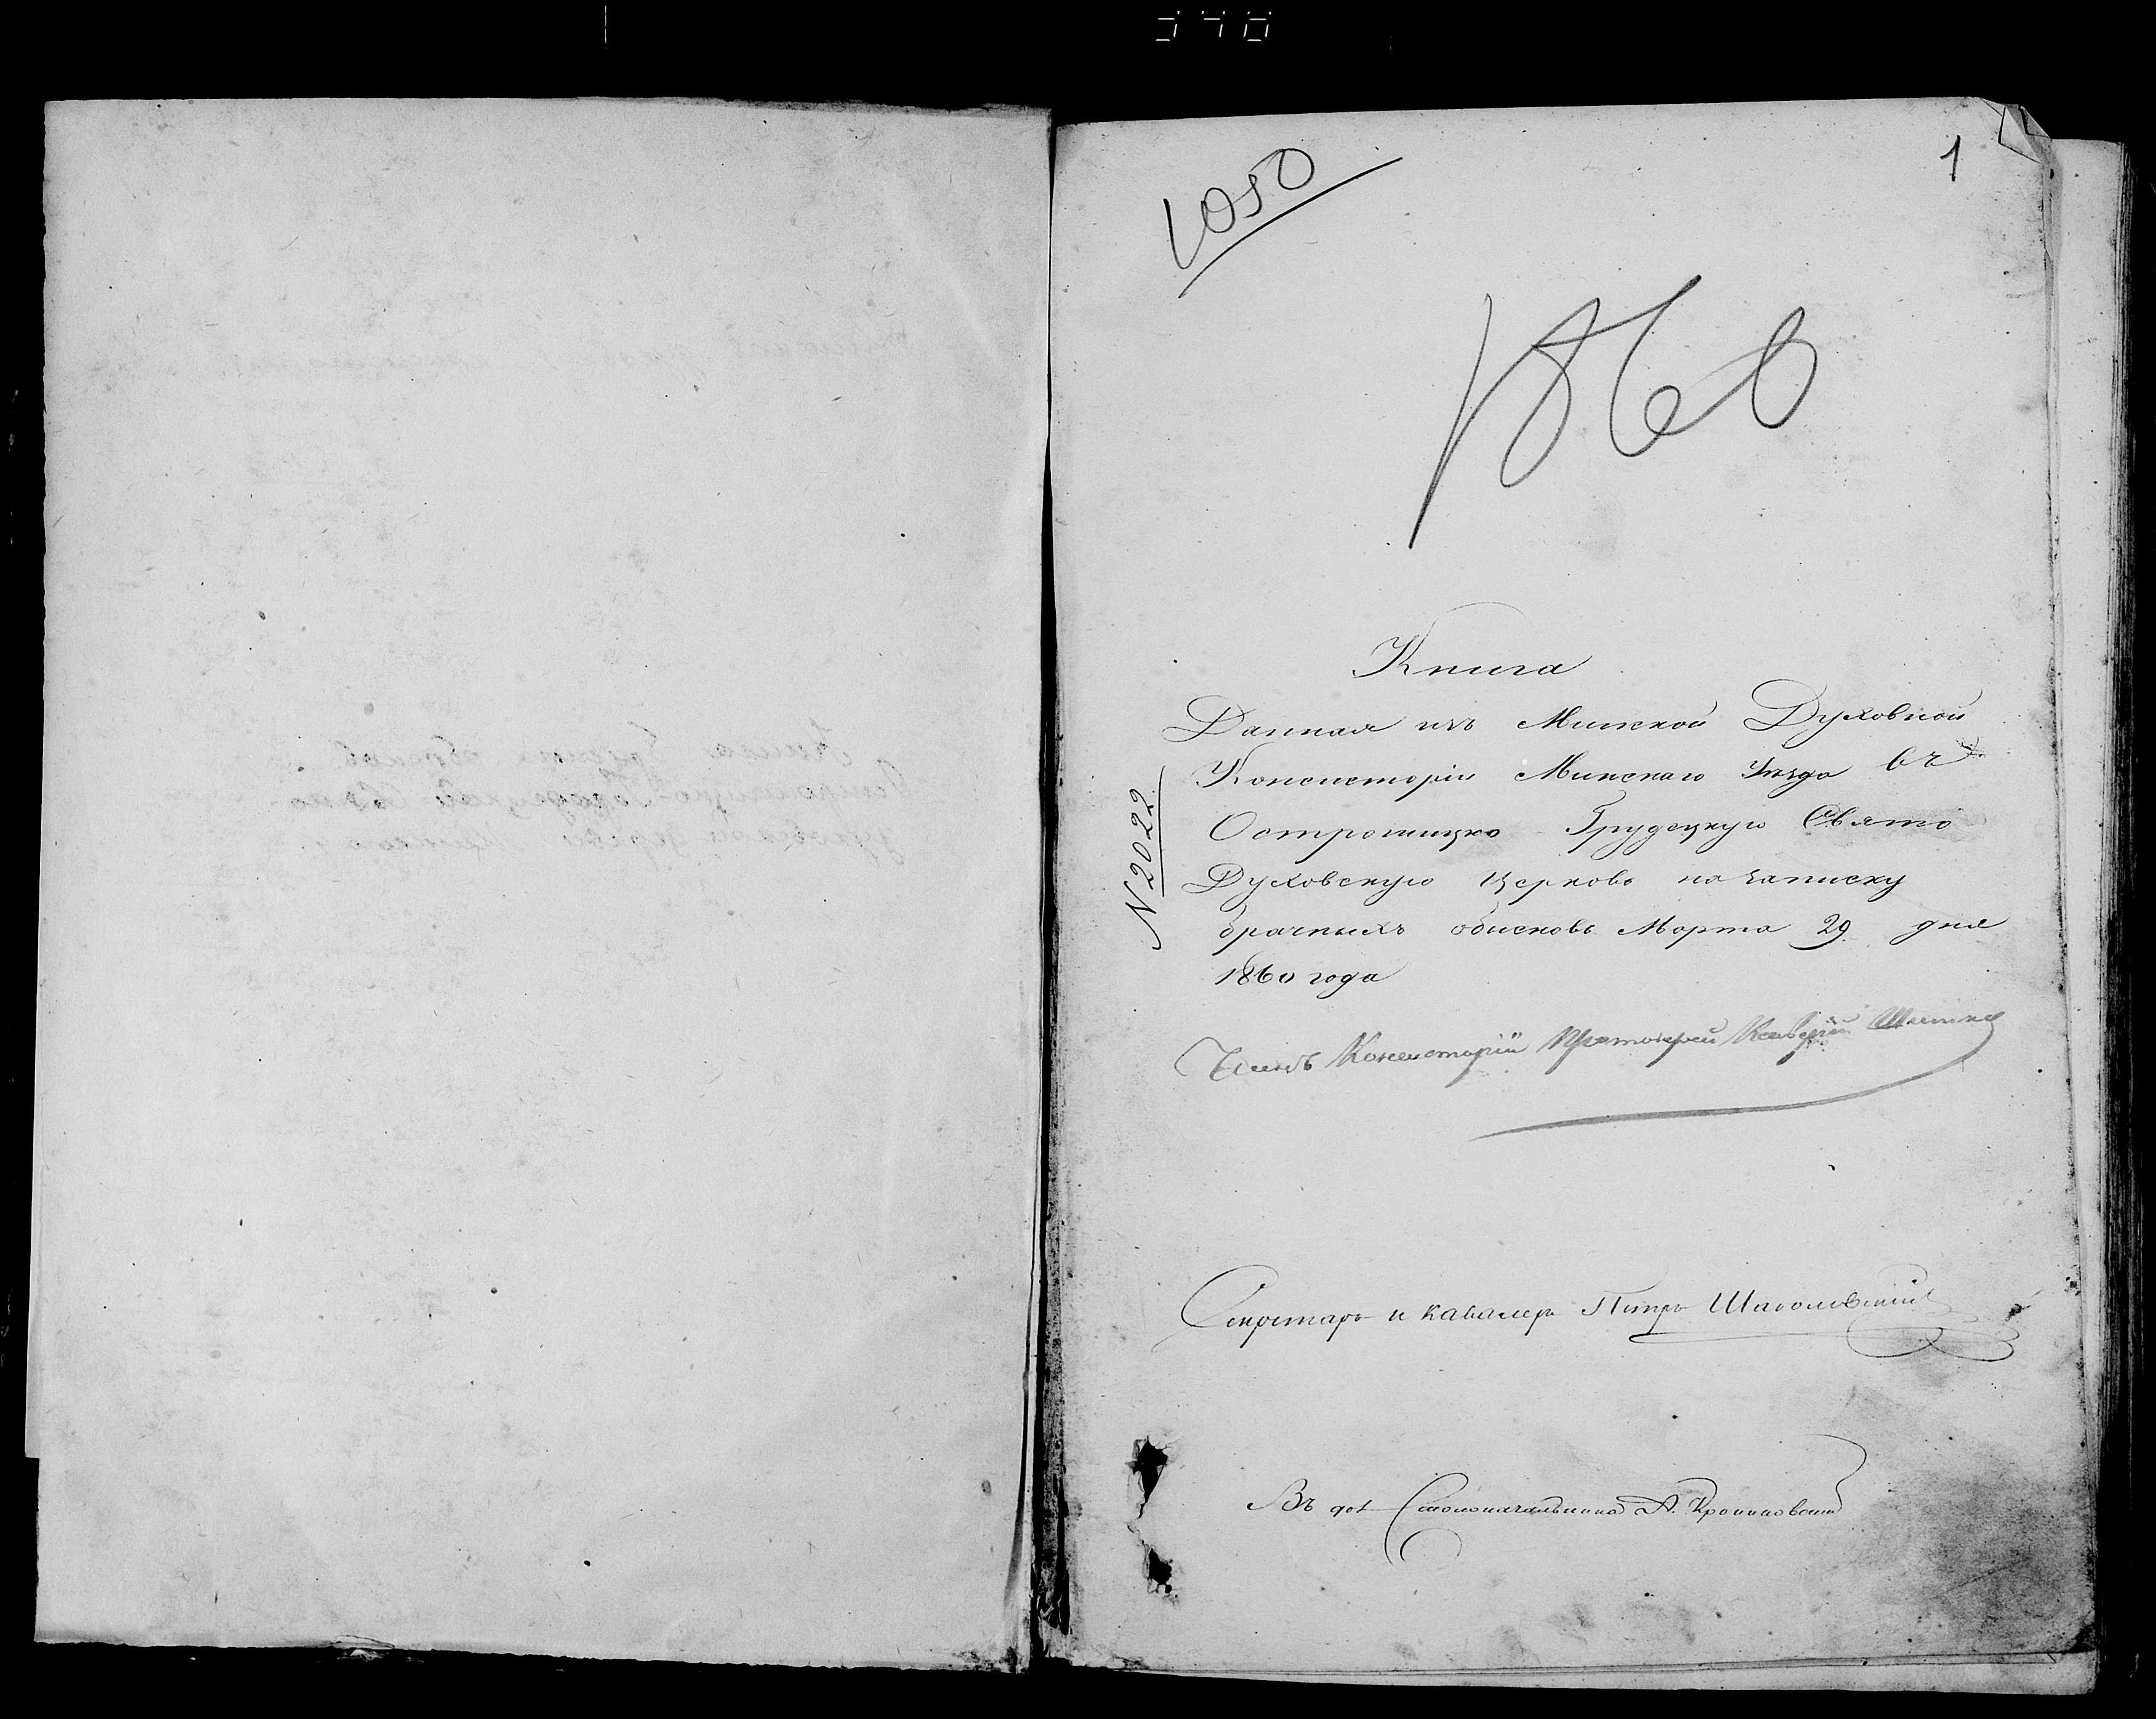 1
1050
1860
Книга
Данная изъ Минской Духовной
Консисторіи Минскаго Уѣзда въ
Острошицко Грудецкую Свято
Духовскую Церковь на записку
брачныхъ обысковъ Марта 29 дня
1860 года
N 2022
Членъ Консисторіи Протоіерей
Секретарь и Кавалеръ Петръ
Въ дол Столоначальника А.